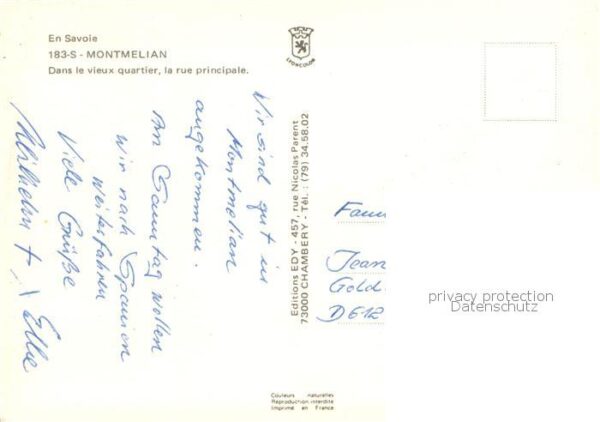 En Savoie
183-S - MONTMELIAN
Dans le vieux quartier, la rue principale.
LYONCOLOR
Wir sind gut in
Montmelian
angekommen.
Am Samstag wollen
wir nach Spanien
weiterfahren
Viele Grüße
Wilhelm + Elke
Editions EDY - 457, rue Nicolas Parent
73000 CHAMBERY - Tél. : (79) 34.58.02
Jean
Gold
D 612
privacy protection
Datenschutz
Couleurs naturelles
Reproduction interdite
Imprimé en France